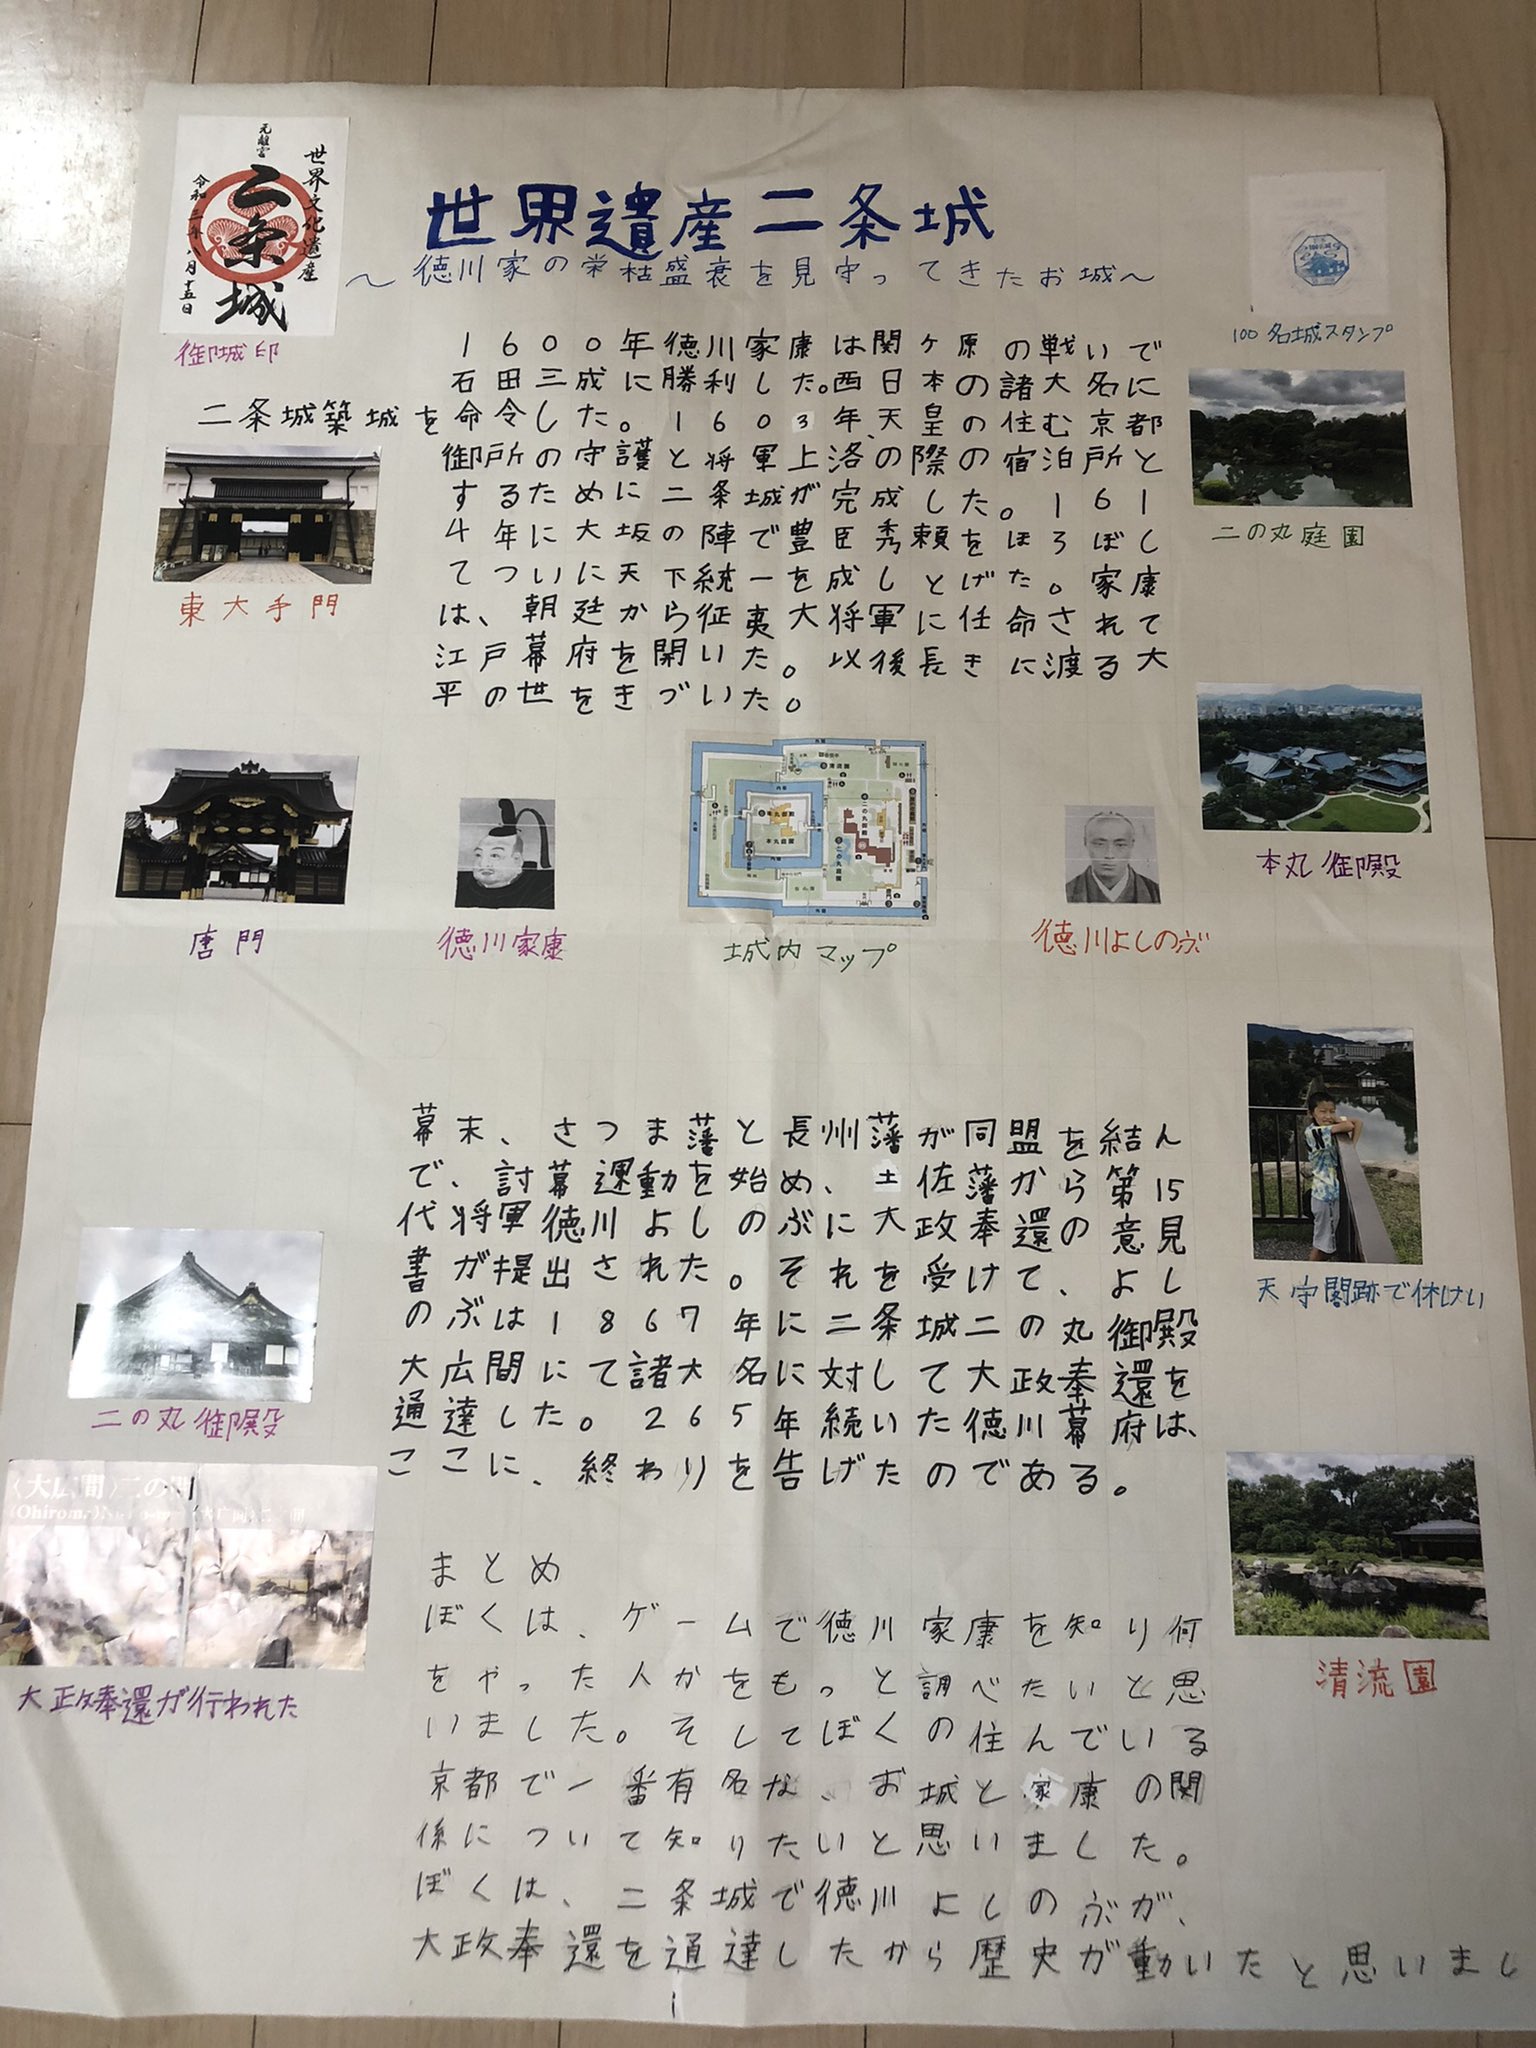 世界文化遺産
元離宮
二条城
令和二年八月十五日
御城印
世界遺産二条城
～徳川家の栄枯盛衰を見守ってきたお城～
100名城スタンプ
1600年徳川家康は関ヶ原の戦いで
石田三成に勝利した。西日本の諸大名に
二条城築城を命令した。1603年、天皇の住む京都
御所の守護と将軍上洛の際の宿泊所と
するために二条城が完成した。161
4年に大坂の陣で豊臣秀頼をほろぼし
てついに天下統一を成しとげた。家康
は、朝廷から征夷大将軍に任命されて
江戸幕府を開いた。以後長きに渡る大
平の世をきづいた。
東大手門
二の丸庭園
唐門
徳川家康
城内マップ
徳川よしのぶ
本丸御殿
幕末、さつま藩と長州藩が同盟を結ん
で、討幕運動を始め、土佐藩から第15
代将軍徳川よしのぶに大政奉還の意見
書が提出された。それを受けて、よし
のぶは1867年に二条城二の丸御殿
大広間にて諸大名に対して大政奉還を
通達した。265年続いた徳川幕府は、
ここに、終わりを告げたのである。
天守閣跡で休けい
二の丸御殿
〈大広間〉二の間
大政奉還が行われた
清流園
まとめ
ぼくは、ゲームで徳川家康を知り何
をやった人かをもっと調べたいと思
いました。そしてぼくの住んでいる
京都で一番有名な、お城と家康の関
係について知りたいと思いました。
ぼくは、二条城で徳川よしのぶが、
大政奉還を通達したから歴史が動いたと思いまし